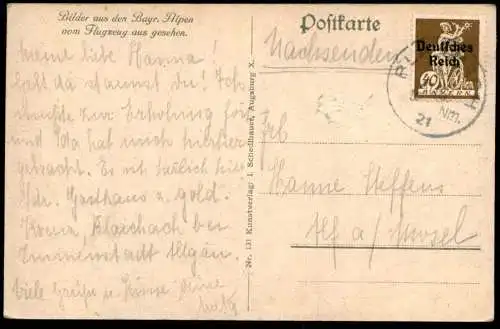 Bilder aus den Bayr. Alpen
vom Flugzeug aus gesehen.
Meine liebe Hanna!
Gelt da staunst du! Ich
mußte zur Erholung fort
und hat mich hierher
gebracht. Es ist herrlich hier
Adr. Gasthaus z. gold.
Krone, Blaichach bei
Immenstadt Allgäu.
Viele Grüße u. Küsse Deine
Nr. 131 Kunstverlag: I. Schedlbauer, Augsburg X.
Postkarte
Nachsenden
Deutsches
Reich
40
BAYERN
Nm.
21
Frl
Hanne Steffens
Alf a/Mosel